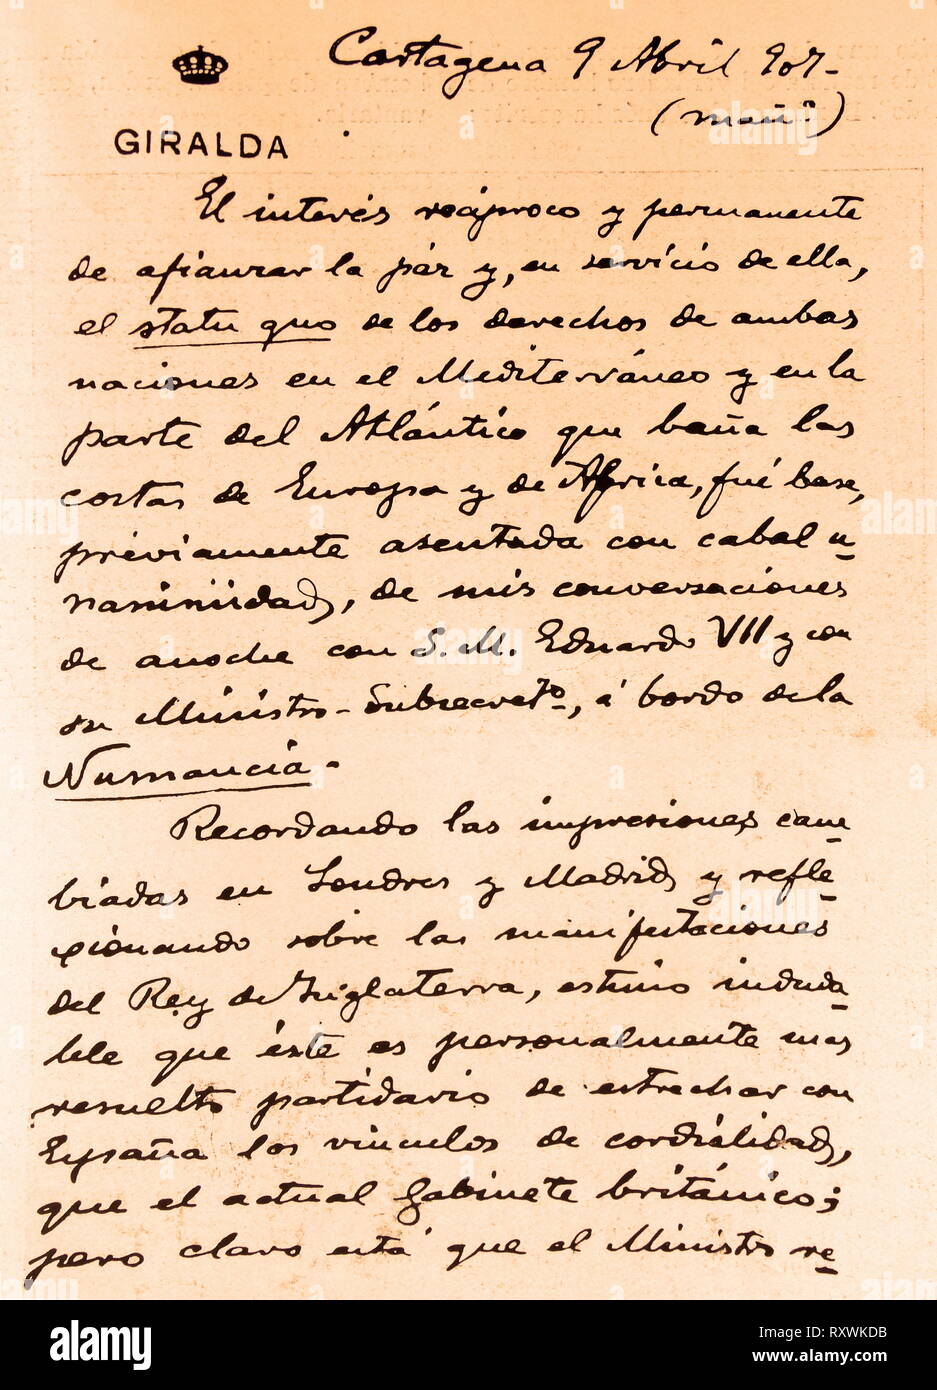 Cartagena 9 Abril 907-
(mañª)
GIRALDA
El interés recíproco y permanente
de afianzar la páz y, en servicio de ella,
el statu quo de los derechos de ambas
naciones en el Mediterráneo y en la
parte del Atlántico que baña las
costas de Europa y de Africa, fué base,
préviamente asentada con cabal u-
nanimidad, de mis conversaciones
de anoche con S. M. Eduardo VII y con
su Ministro-Subsecretº, á bordo de la
Numancia.-
Recordando las impresiones cam-
biadas en Londres y Madrid y refle-
xionando sobre las manifestaciones
del Rey de Inglaterra, estimo induda-
ble que éste es personalmente mas
resuelto partidario de estrechar con
España los vínculos de cordialidad,
que el actual Gabinete británico;
pero claro está que el Ministro re-
alamy
Image ID: RXWKDB
www.alamy.com